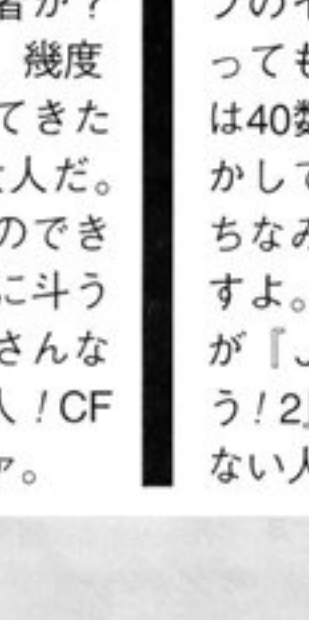 者か？
幾度
てきた
人だ。
のでき
に斗う
さんな
人！CF
ァ。
プのイ
っても
は40数
かして
ちなみ
すよ。
が『J
う！2
ない人